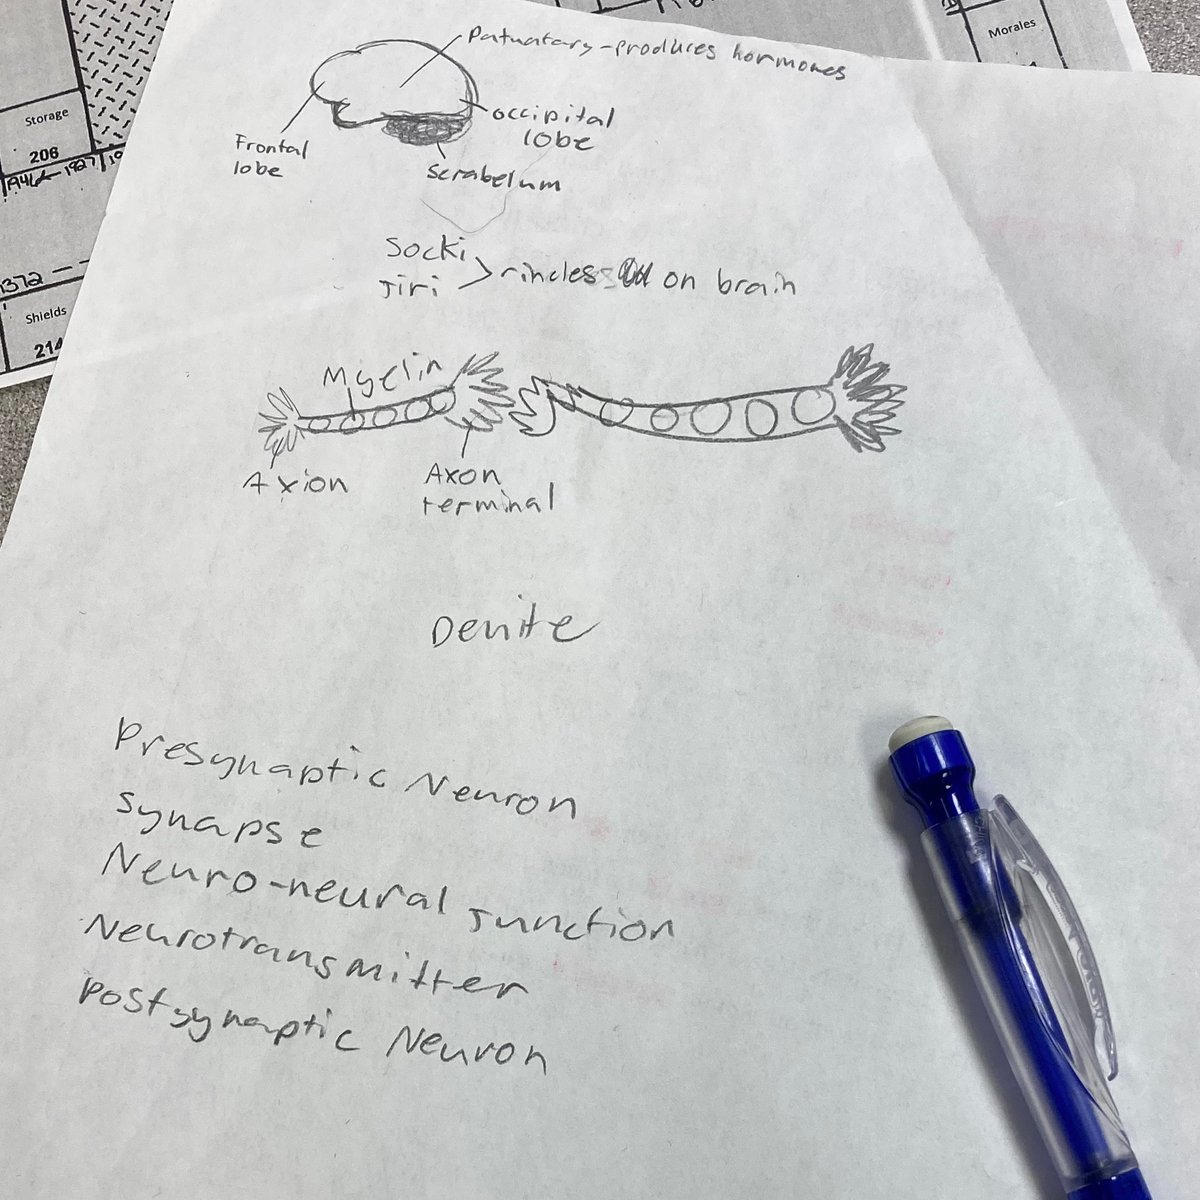 Patuatary-produces hormones
occipital
lobe
Frontal
lobe
Scrabelum
Socki
Jiri
rincless on brain
Myelin
Axion
Axon
terminal
Denite
Presynaptic Neuron
synapse
Neuro-neural Junction
Neurotransmitter
Postsynaptic Neuron
Storage
206
1372
Shields
214
Morales